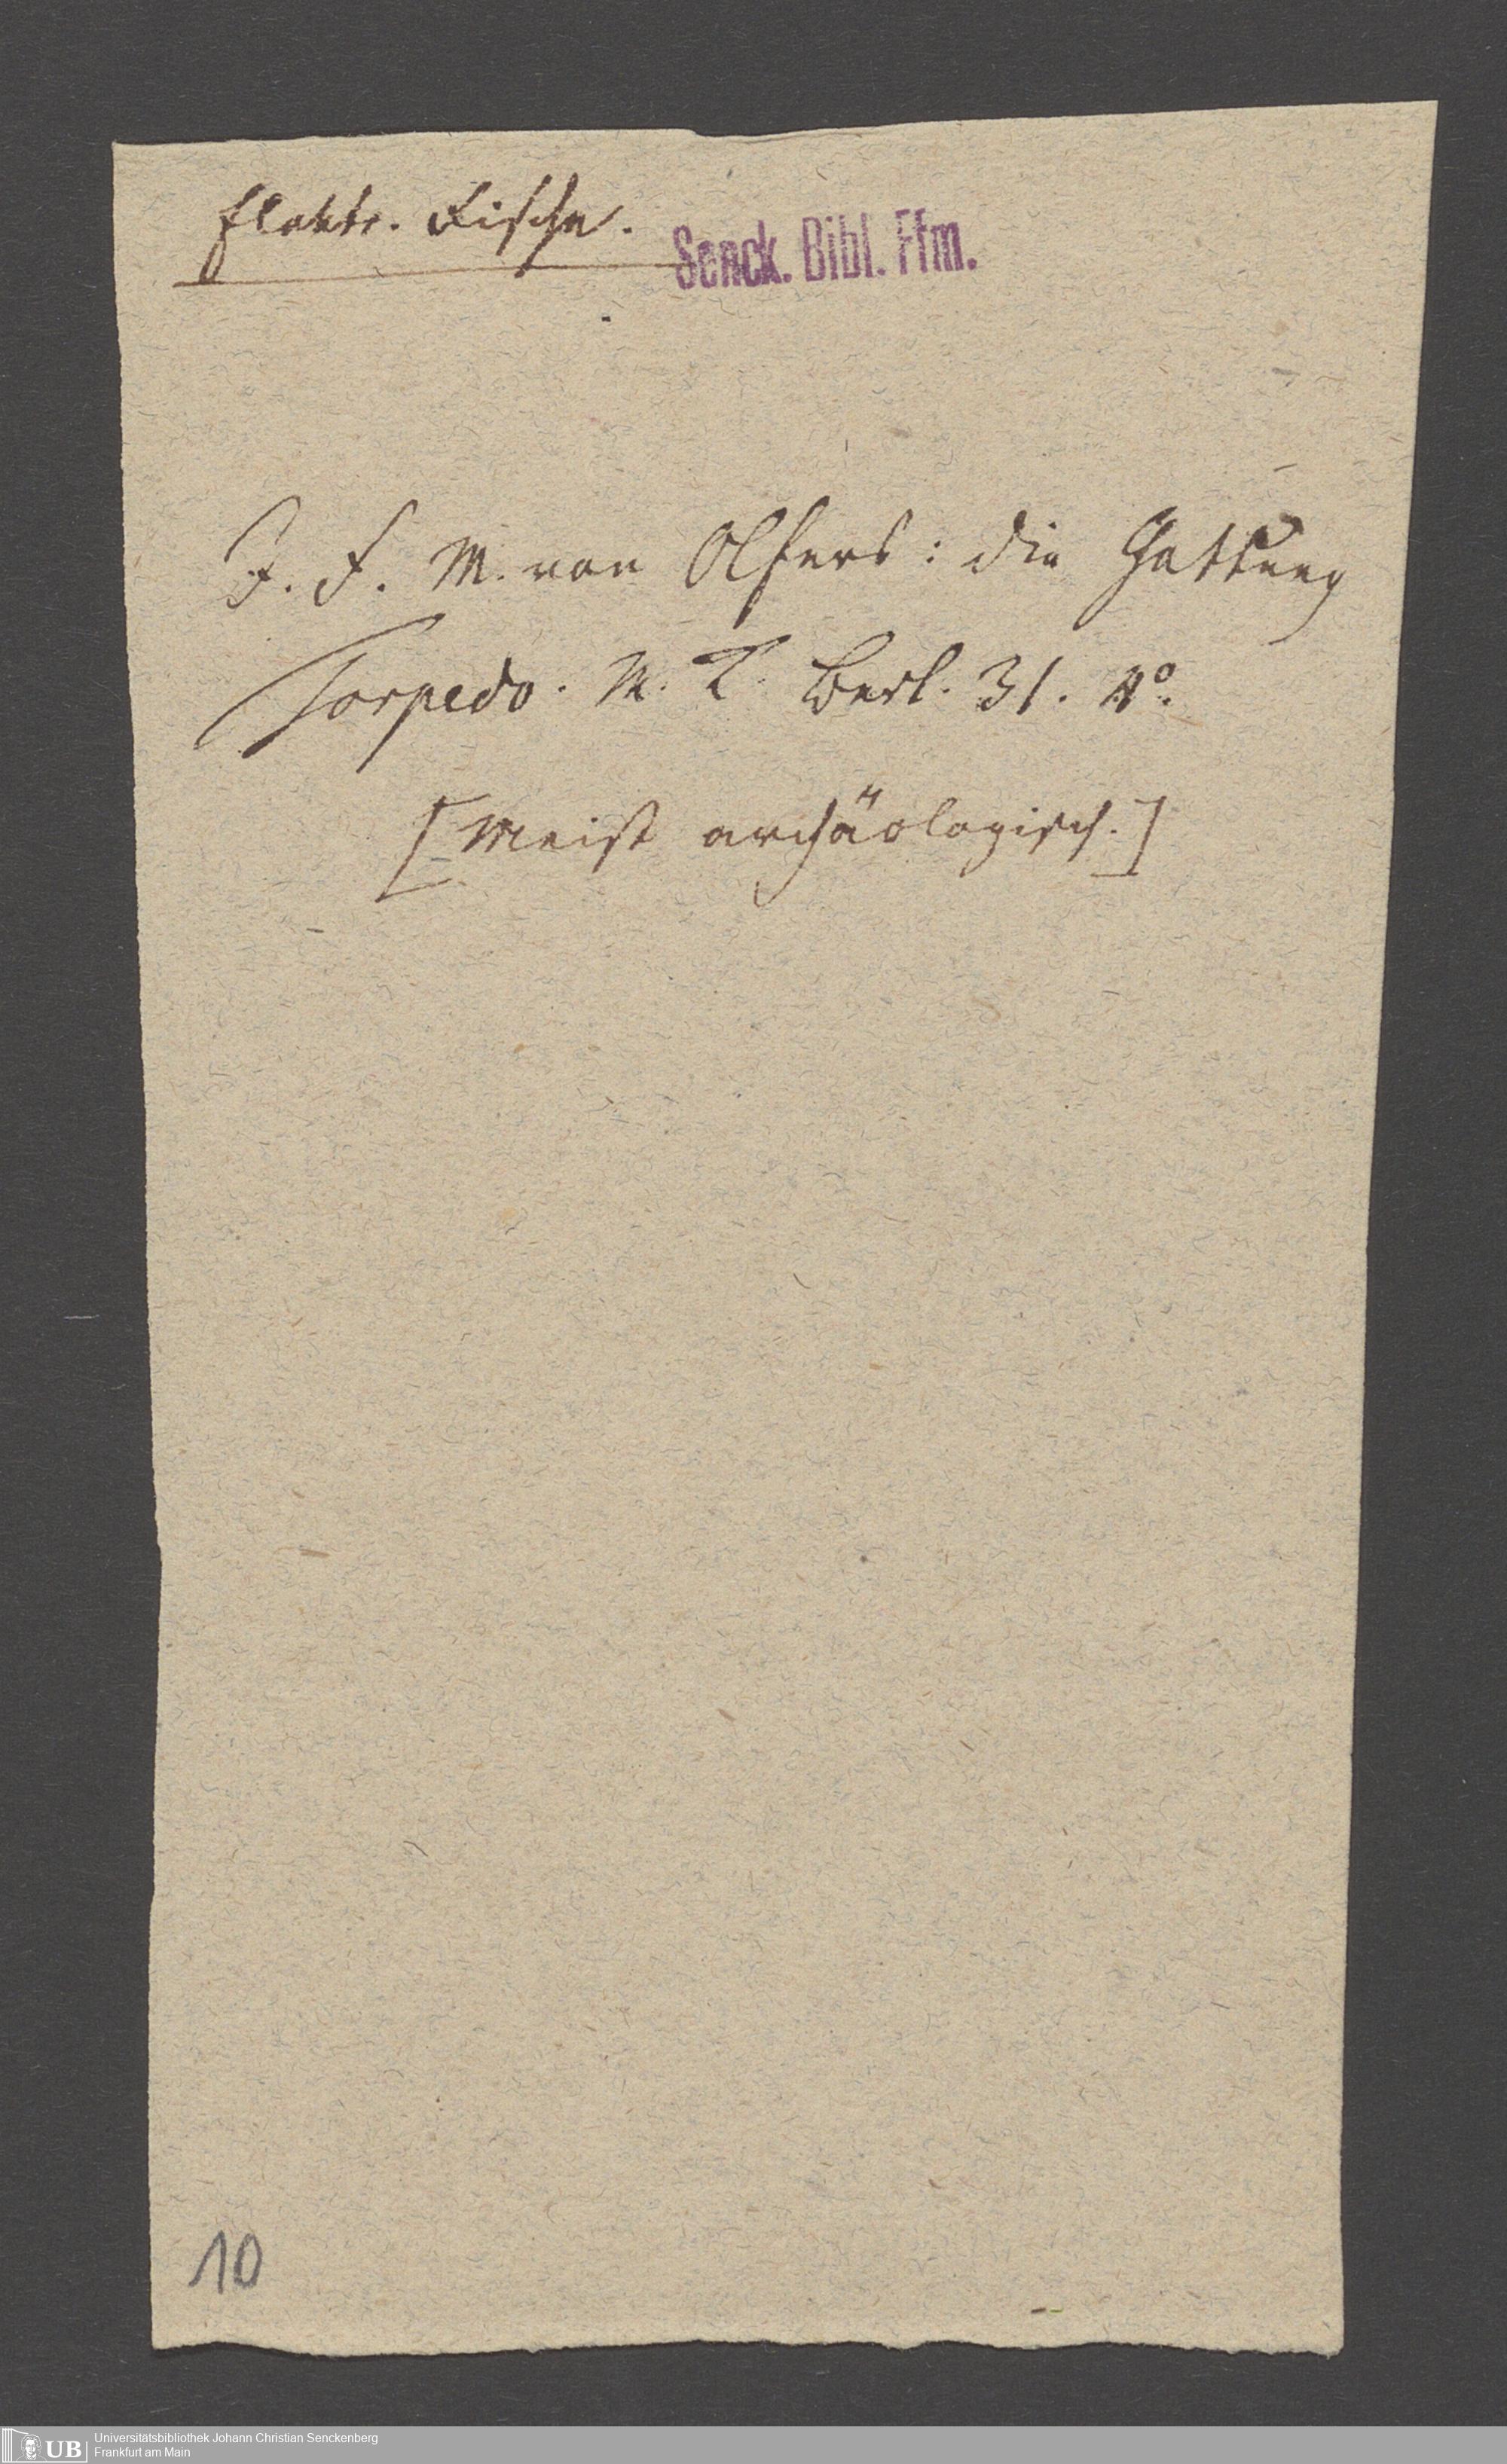 Elektr. Fische.
Senck. Bibl. Ffm.
J. F. M. von Olfers: die Gattung
Torpedo. M. T. Berl. 31. 4°.
[Meist archäologisch.]
10
UB
Universitätsbibliothek Johann Christian Senckenberg
Frankfurt am Main